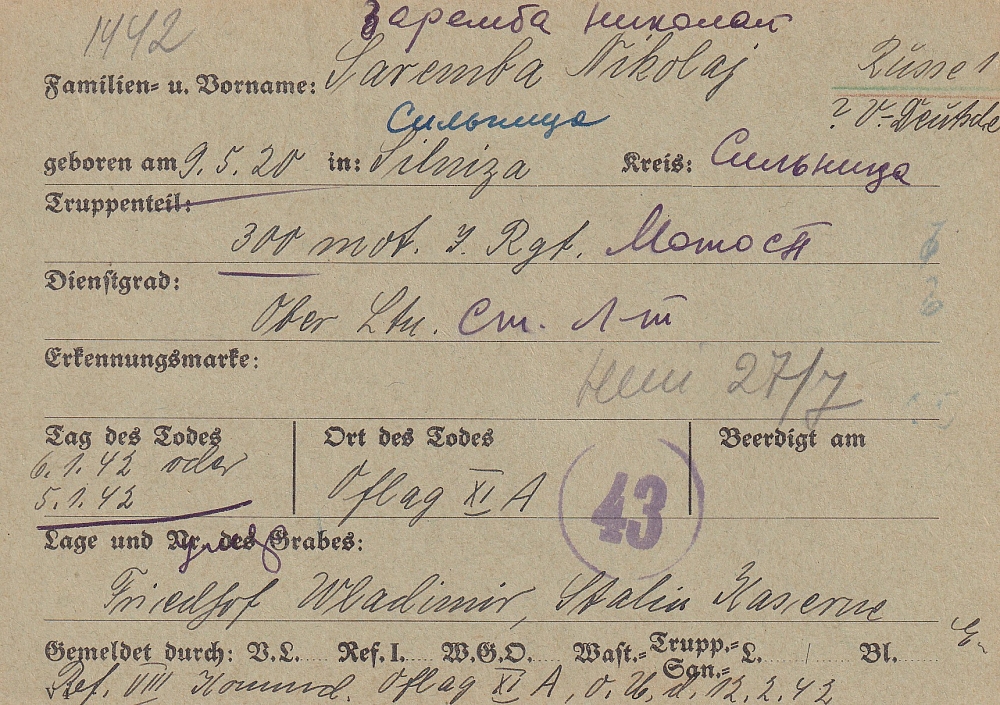 Заремба Николай
1442
Familien- u. Vorname: Saremba Nikolaj
Russe
? V.-Deutsche
Сильница
geboren am 9.5.20 in: Silniza Kreis: Сильница
Truppenteil:
300 mot. I. Rgt. Мото сп
Dienstgrad:
Ober Ltn. Ст. л-т
Erkennungsmarke:
27/7
Tag des Todes Ort des Todes Beerdigt am
6.1.42 oder
5.1.42 Oflag XI A
43
Lage und Nr. des Grabes:
Friedhof Wladimir, Stalin Kaserne
Gemeldet durch: V.L. Ref. I. W.G.O. Wast.- Trupp.- San.- L. Bl.
Ref. VIII Kommd. Oflag XI A, O.U., d. 12.2.42